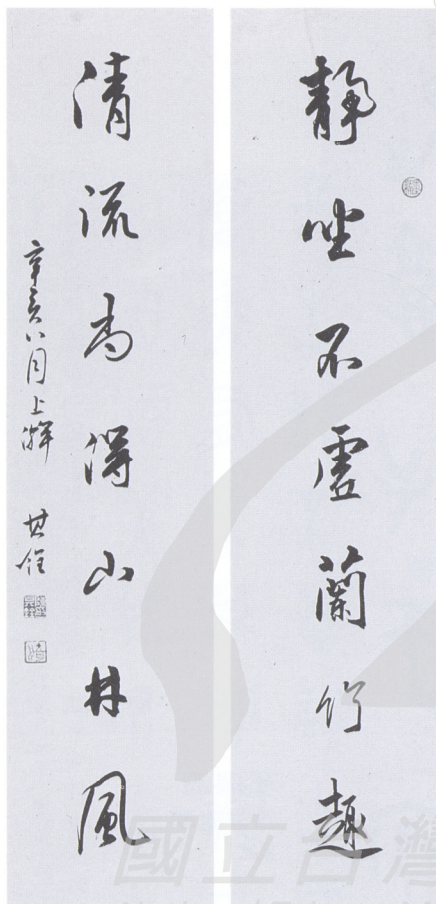 靜坐不虛蘭竹趣
清流尚得山林風
辛亥八月上澣
國立台灣